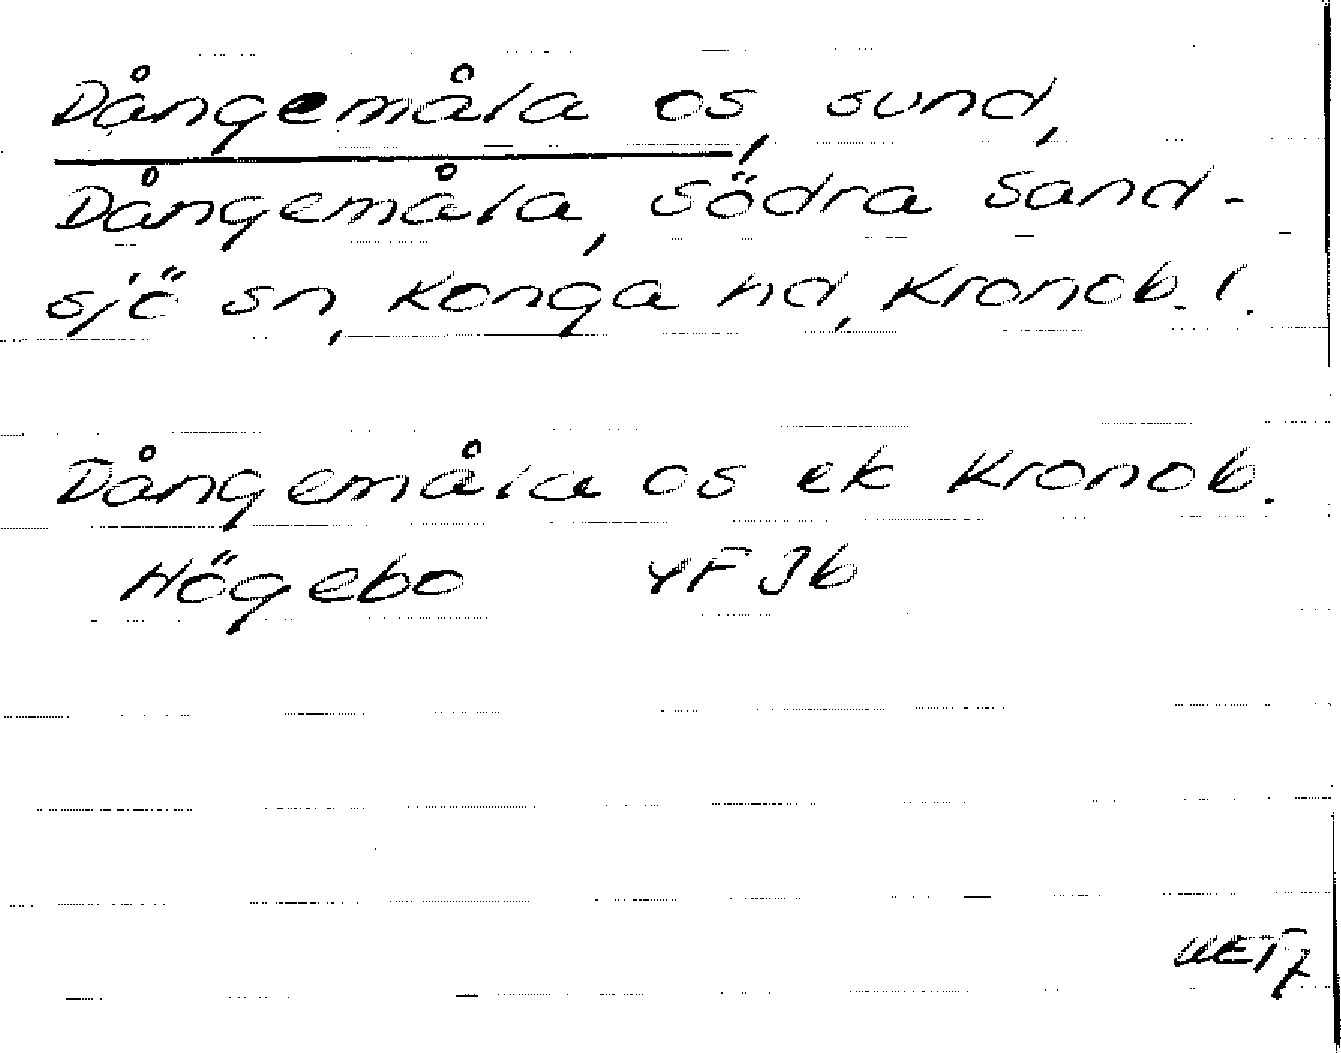 Dångemåla os, sund,
Dångemåla, Södra Sand-
sjö sn, Konga hd, Kronob. l.
Dångemåla os ek Kronob.
Högebo 4F3b